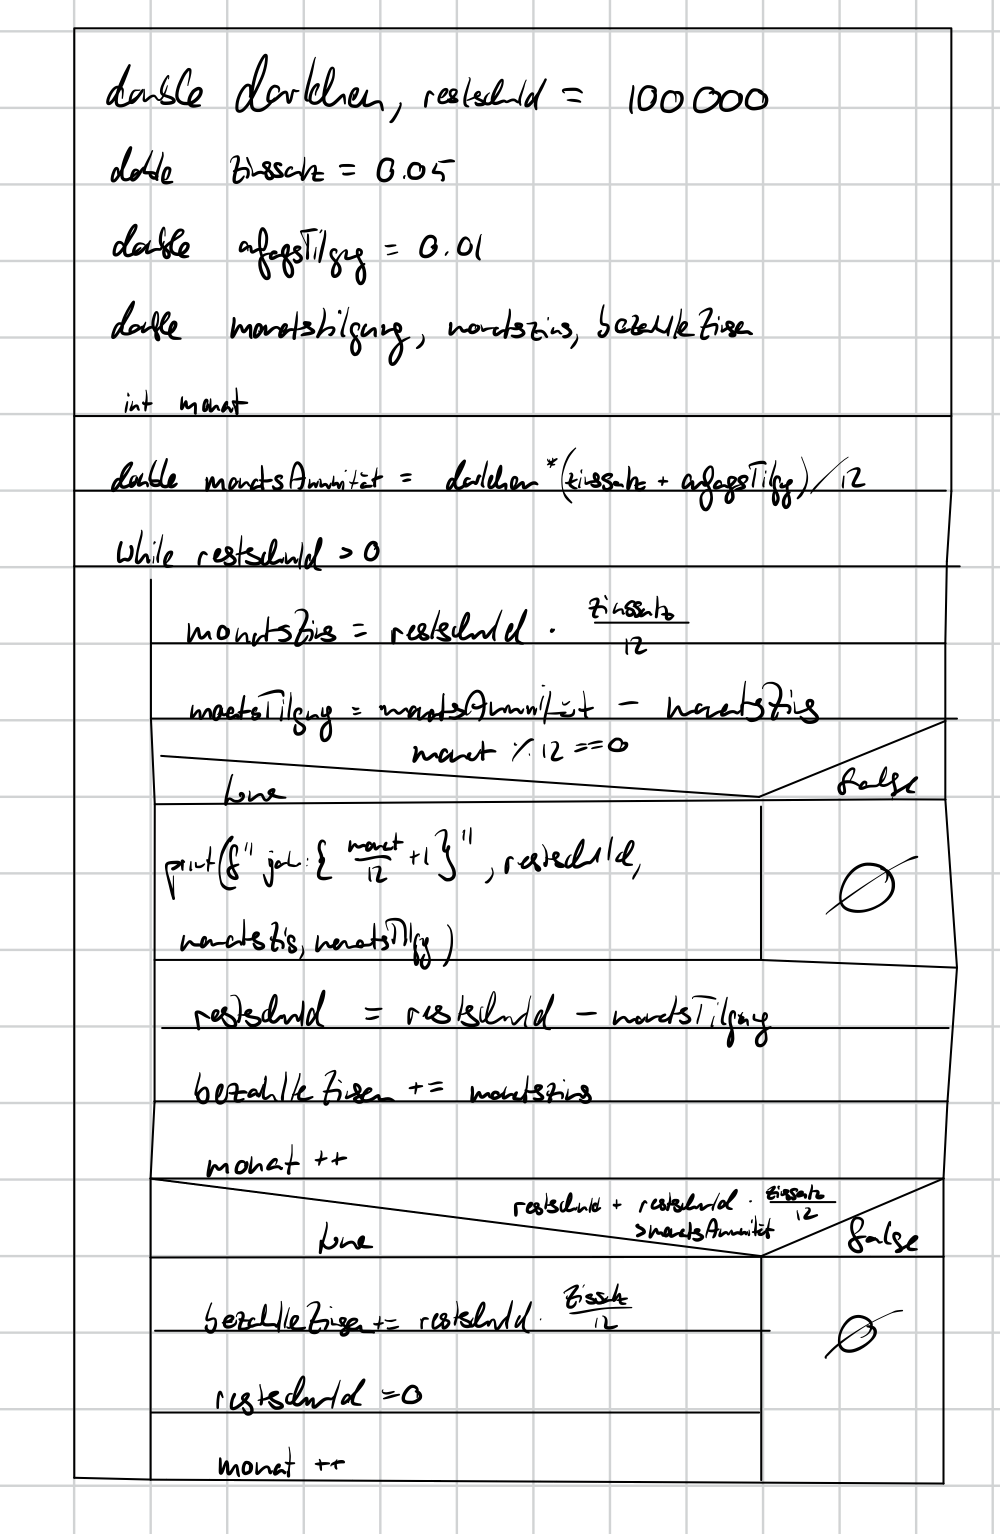 double darlehen, restschuld = 100000
double zinssatz = 0.05
double anfagsTilgug = 0.01
double monatstilgung, monatszins, bezahlteZinsen
int monat
double monatsAnnuität = darlehen *(zinssatz + anfagsTilgug)/12
while restschuld > 0
monatsZins = restschuld · zinssatz/12
monatsTilgung = monatsAnnuität - monatsZins
monat % 12 == 0
true false
print(f" jahr: { monat/12 +1}", restschuld, Ø
monatsZins, monatsTilgug)
restschuld = restschuld - monatsTilgung
bezahlteZinsen += monatszins
monat ++
restschuld + restschuld · zinssatz/12
>monatsAnnuität
true false
bezahlteZinsen += restschuld · zinssatz/12
Ø
restschuld =0
monat ++